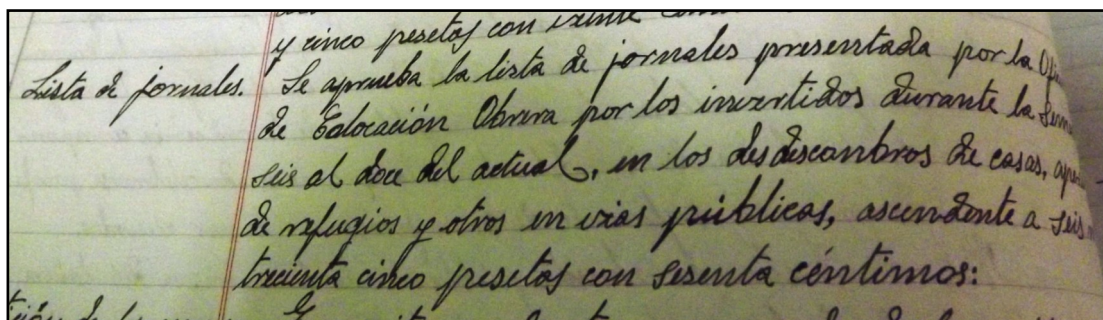 y cinco pesetas con veinte
Lista de jornales. Se aprueba la lista de jornales presentada por la
de Colocación Obrera por los invertidos durante la
seis al doce del actual, en los desdescombros de casas,
de refugios y otros en vias públicas, ascendente a seis
treciunta cinco pesetas con sesenta céntimos: